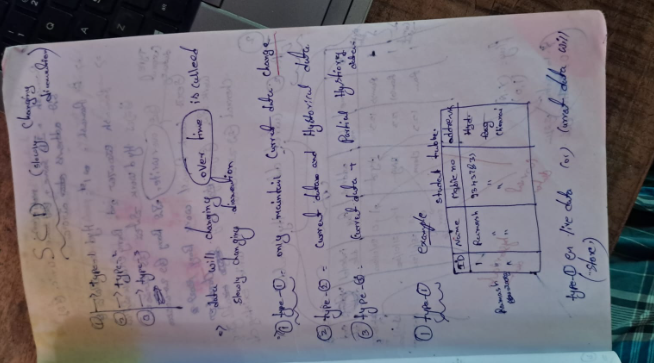 SCD (slowly changing dimension)
① → type-1
② → type-2
③ → type-3
⇒ data will changing over time is called
slowly changing dimention
① type-① only maintain current data change
② type-② = current data and Hystorical data
③ type-③ = current data + Partial Hystiory data.
① type-① example
student table
ID Name mobile no address
1 Ramesh Hyd
" " " Bag
" " " Chennai
Ramesh
type-① en live data (or) current data will
(store)